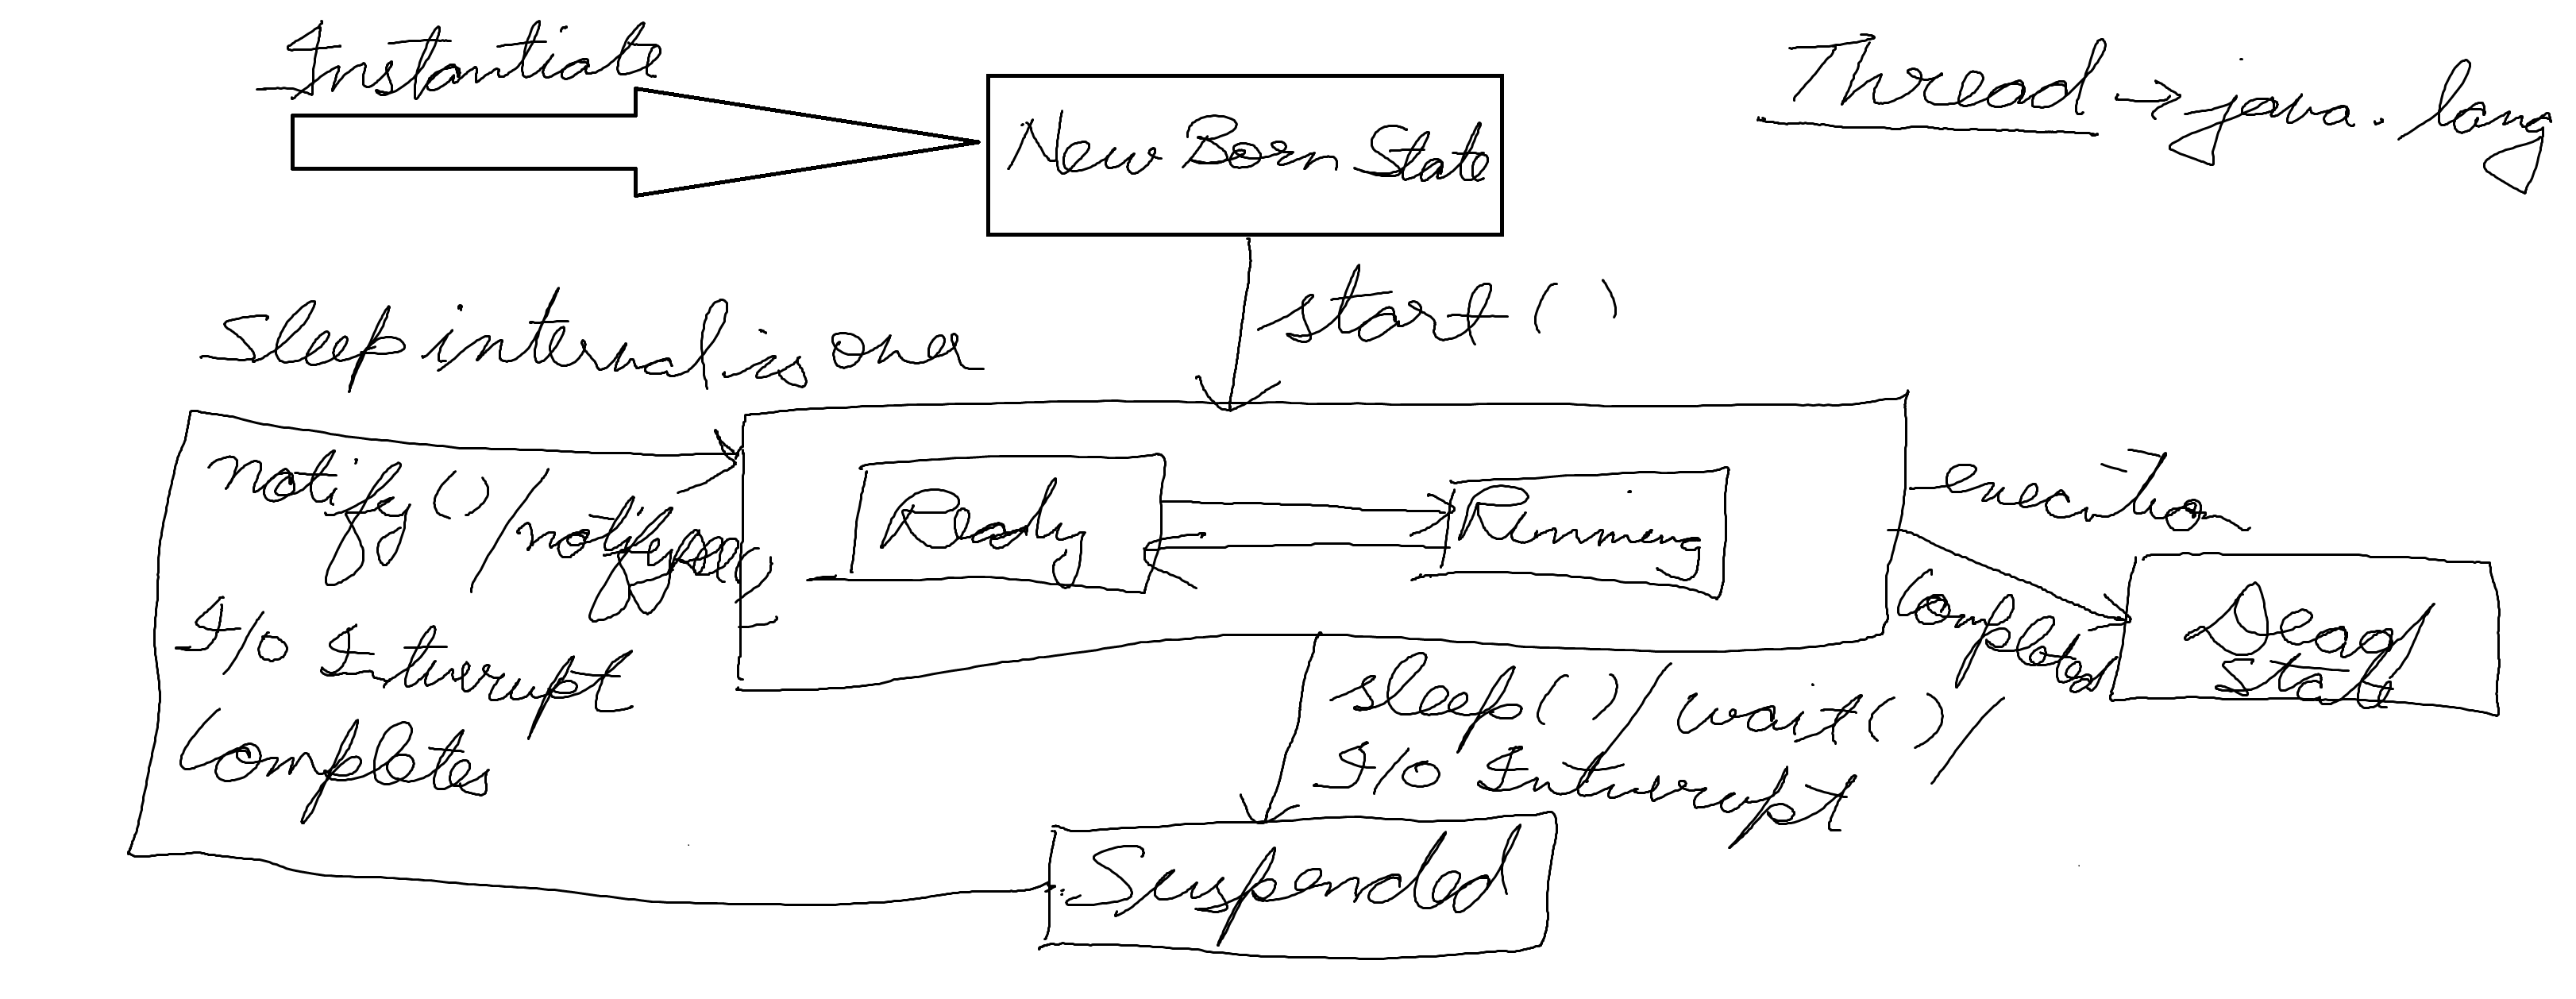 Instantiate
New Born State
Thread → java.lang
start ( )
Sleep interval is over
notify ( ) / notifyAll ( )
I/O Interrupt
Completes
Ready
Running
execution
Completed
Dead
State
sleep ( ) / wait ( ) /
I/O Interrupt
Suspended